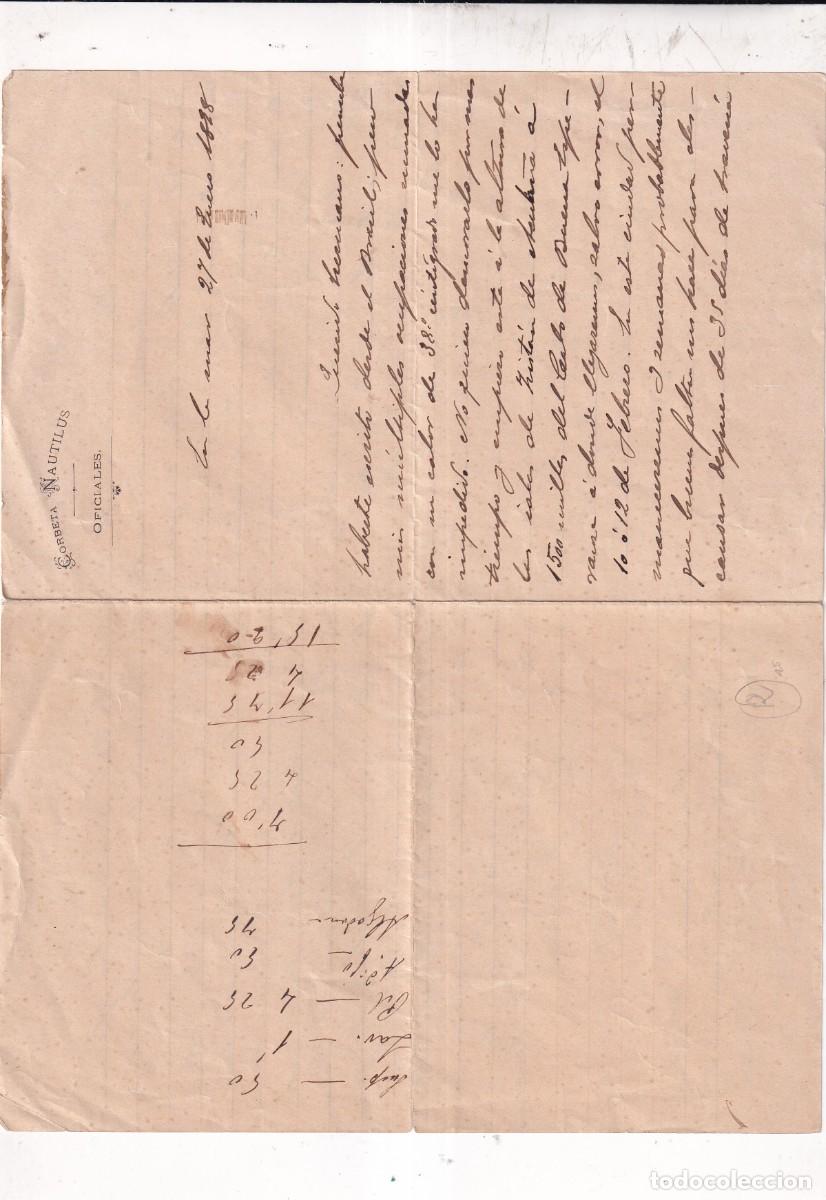 CORBETA NAUTILUS
OFICIALES.
En la mar 27 de Enero 1898
Querido hermano: pensaba
haberte escrito desde el Brasil; pero
mis múltiples ocupaciones unidas
con un calor de 38º centígrado me lo han
impedido. No quiero demorarlo por mas
tiempo y empiezo esta á la altura de
las islas de Tristán de Acuña á
1500 millas del Cabo de Buena Espe-
ranza á donde llegaremos, salvo error, el
10 ó 12 de Febrero. En esta ciudad per-
maneceremos 3 semanas probablemente
que buena falta nos hace para des-
cansar despues de 35 días de travesía
Lav. — 1'
4 25
50
Algodon — 75
7'00
4 25
50
11'75
4 25
15'90
R
15
todocoleccion